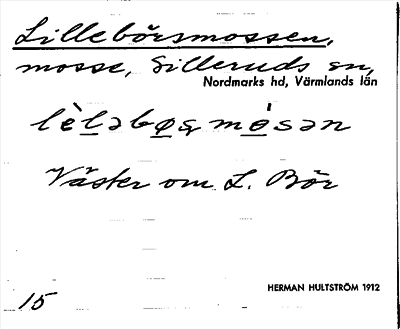 Lillebörsmossen,
mosse, Silleruds sn,
Nordmarks hd, Värmlands län
lèləbøʂmósən
Väster om L. Bör
HERMAN HULTSTRÖM 1912
15